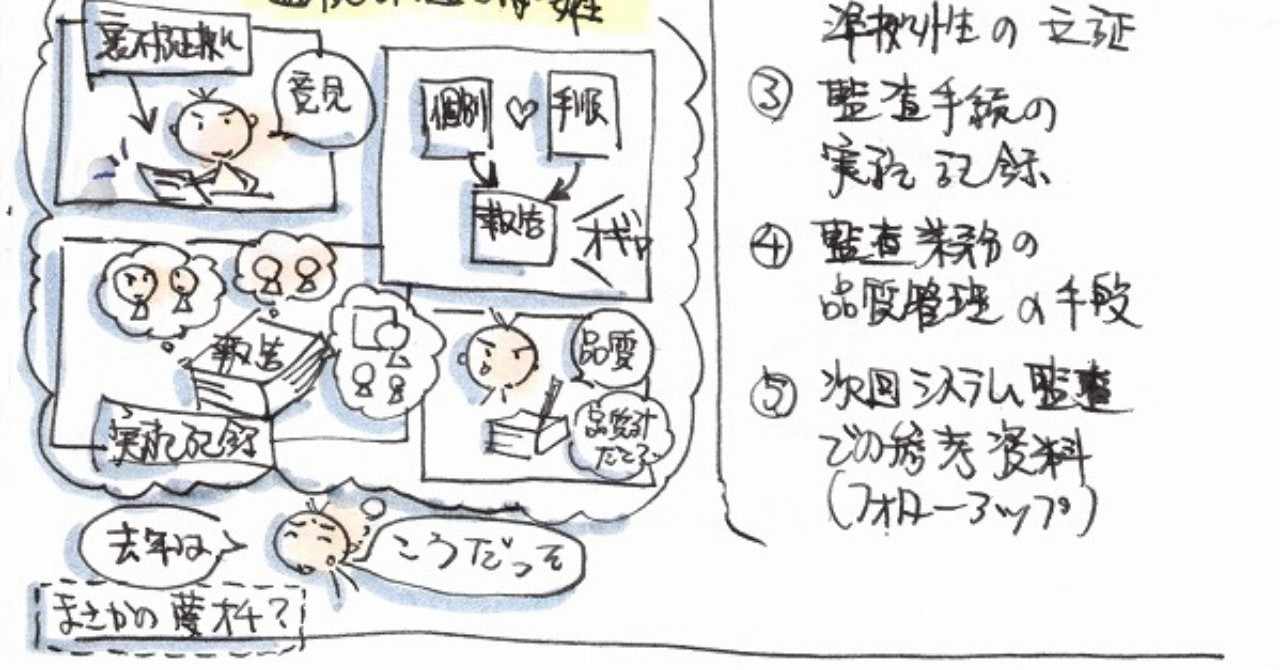 意見
個別 ♡ 手順
報告
報告
実施記録
品質
去年は
こうだっそ
まさかの夢オチ?
準拠性の立証
③ 監査手続の
実施記録
④ 監査業務の
品質管理の手段
⑤ 次回システム監査
での参考資料
(フォローアップ)